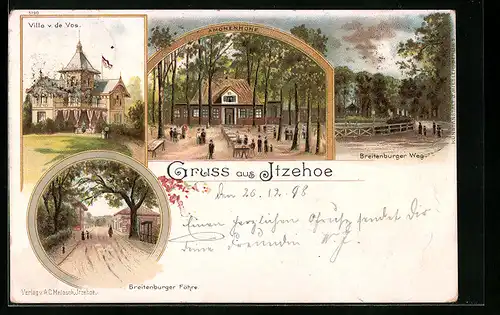 Villa v. de Vos.
AMÖNENHÖHE
Breitenburger Weg.
Gruss aus Itzehoe
den 26.12.98
Einen herzlichen Gruß sendet Dir
Deine Freundin
Breitenburger Fähre.